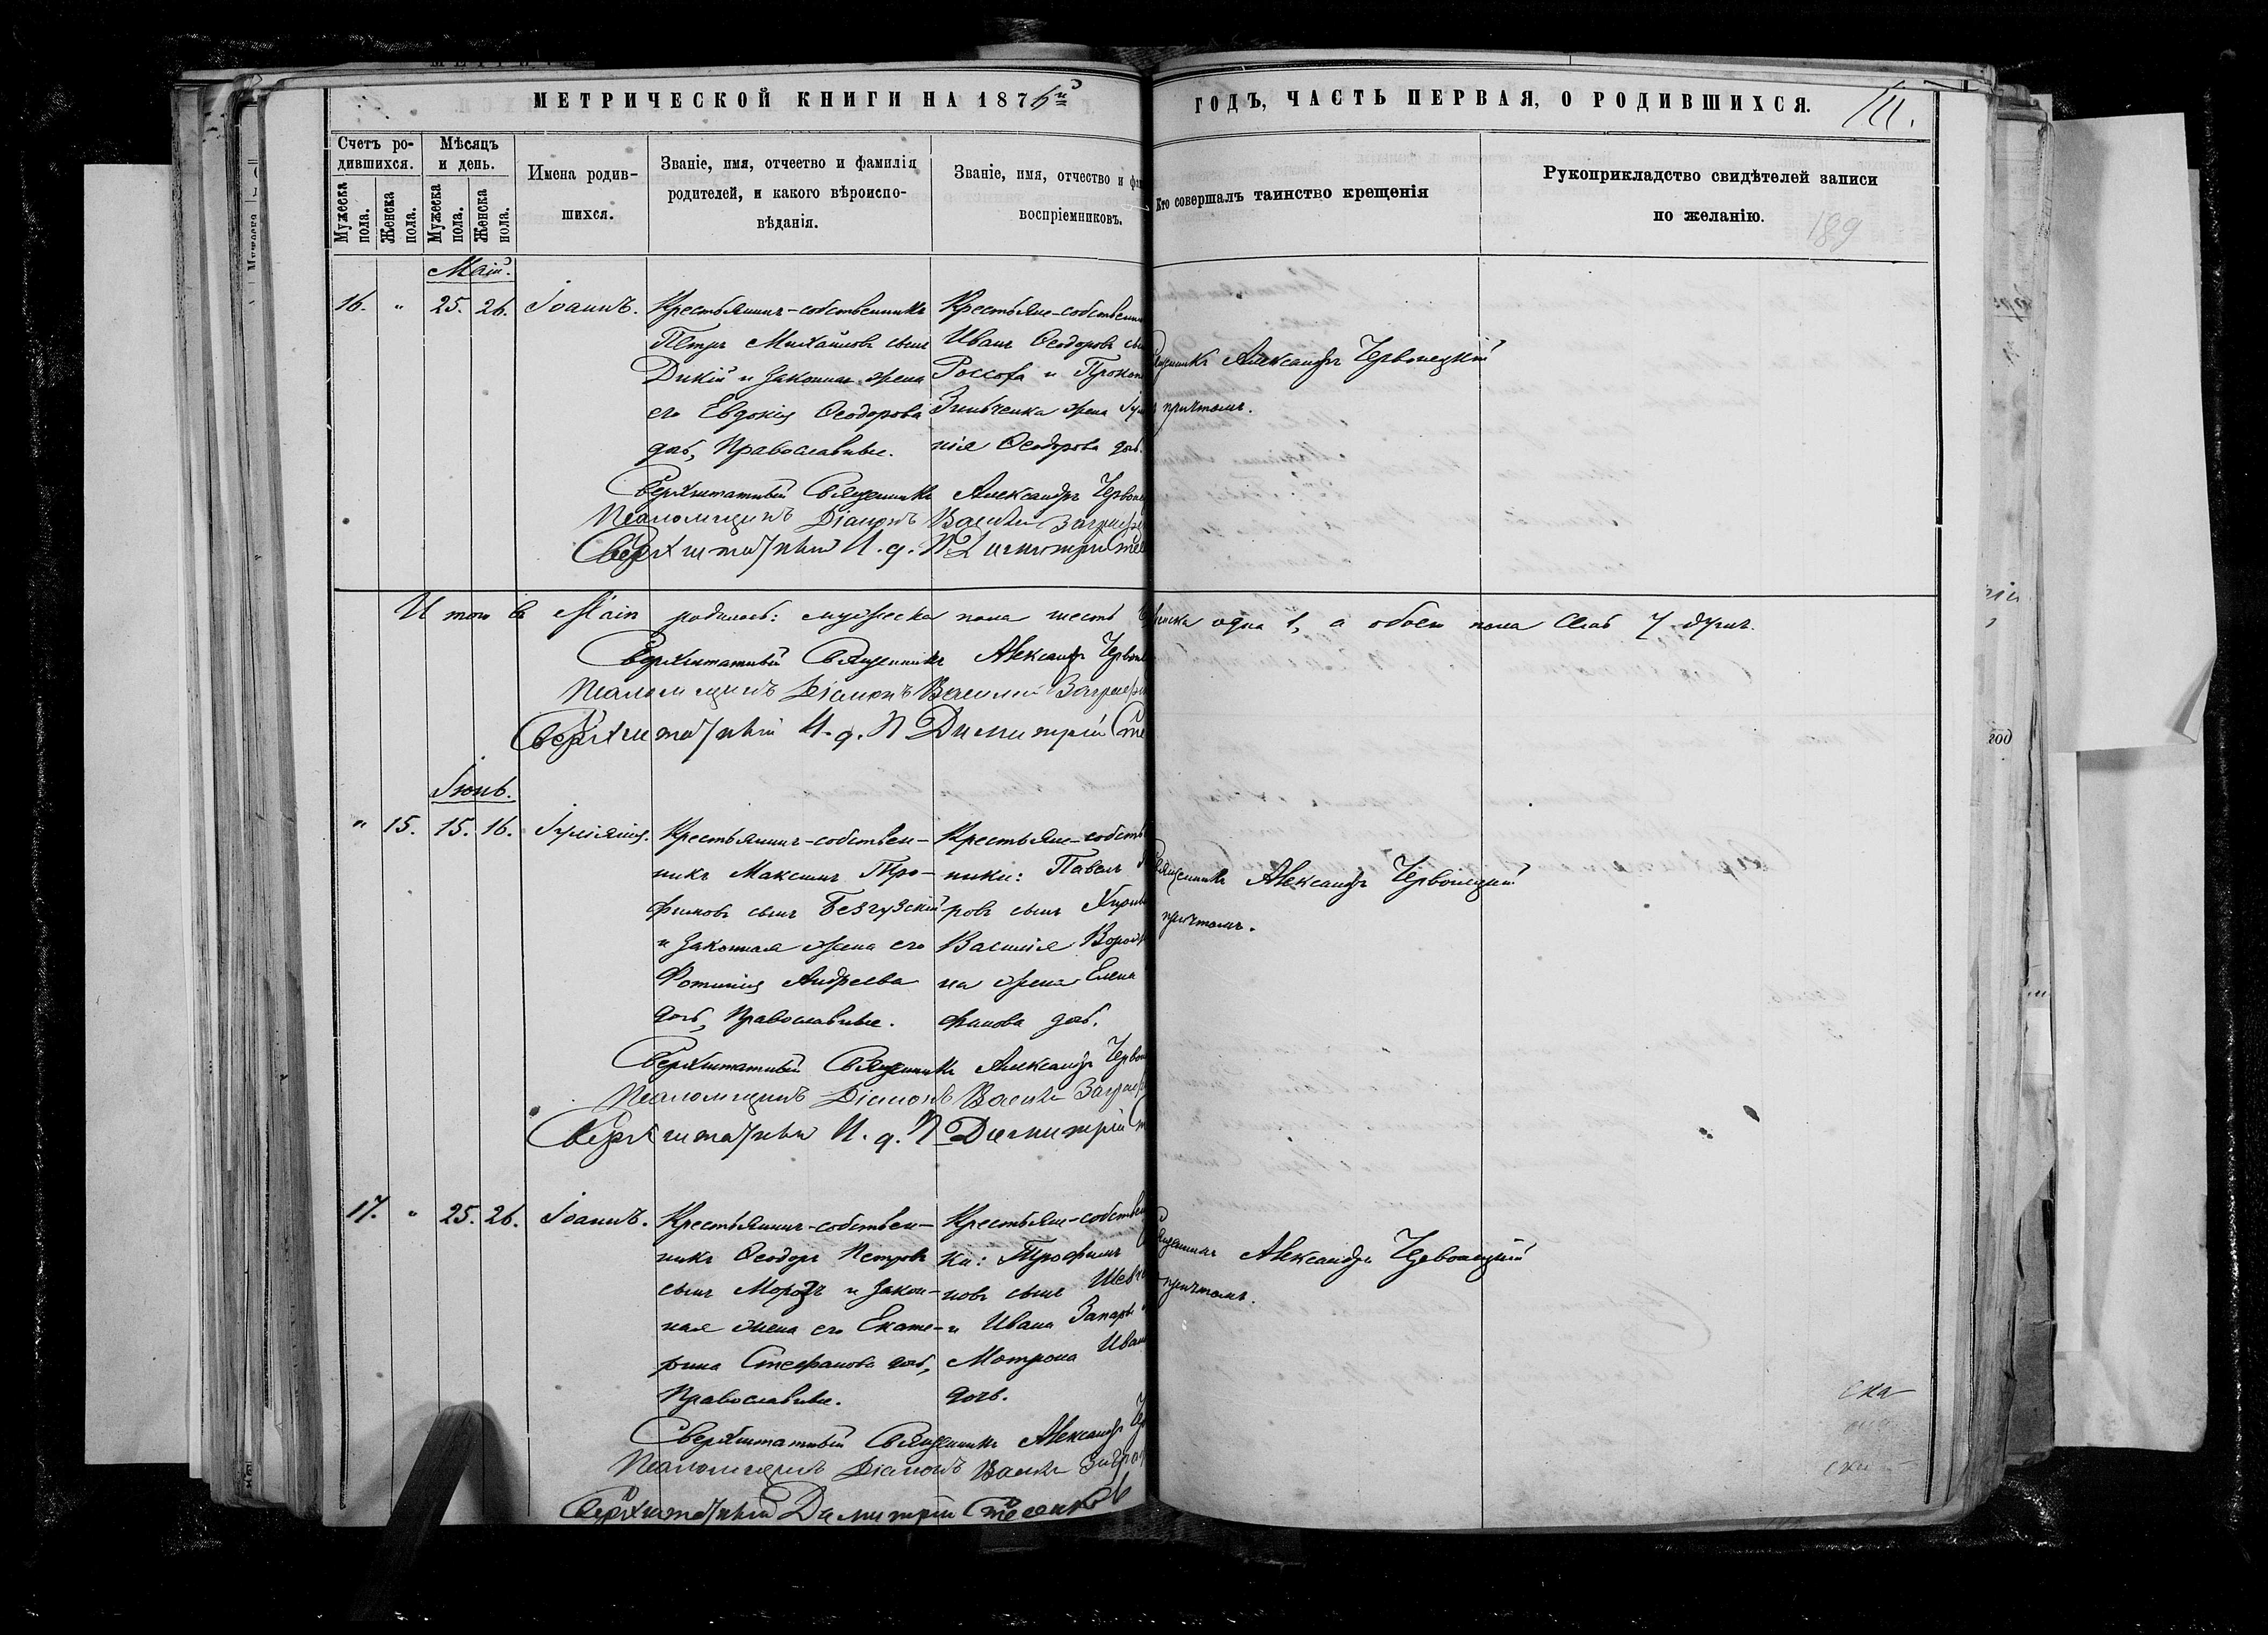 МЕТРИЧЕСКОЙ КНИГИ НА 1876й
ГОДЪ, ЧАСТЬ ПЕРВАЯ, О РОДИВШИХСЯ.
Счетъ ро-
дившихся.
Мужеска пола.
Женска пола.
Мѣсяцъ
и день.
Мужеска пола.
Женска пола.
Имена родив-
шихся.
Званіе, имя, отчество и фамилія
родителей, и какого вѣроиспо-
вѣданія.
Званіе, имя, отчество и
воспріемниковъ.
Кто совершалъ таинство крещенія
Рукоприкладство свидѣтелей записи
по желанію.
189
Маій.
16. " 25. 26. Іоаннъ.
Крестьянинъ-собственникъ
Петръ Михайловъ сынъ
Дикій и законная жена
его Евдокія Ѳеодорова
дочь, Православные.
Крестьяне-собственни
Иванъ Ѳеодоровъ
Россоха и
Зинченка жена
нія Ѳеодорова дочь.
Александръ Червонецкій
причтомъ.
Сверхштатный Священникъ Александръ
Псаломщикъ Діаконъ Василій
Сверхштатный И. д. П. Димитрій
Итого въ Маіи родилось: мужеска пола шесть
одна 1, а обоего пола семь 7 душъ.
Сверхштатный Священникъ Александръ
Псаломщикъ Діаконъ Василій
Сверхштатный И. д. П Димитрій
Іюнь.
" 15. 15. 16. Іуліанія.
Крестьянинъ-собствен-
никъ Максимъ Тро-
фимовъ сынъ Безгузскій
и законная жена его
Фотинія Андреева
дочь, Православные.
Крестьяне-собств
ники: Павелъ
ровъ сынъ
Василія
на жена Елена
фанова дочь.
Священникъ Александръ Червонецкій
причтомъ.
Сверхштатный Священникъ Александръ
Псаломщикъ Діаконъ Василій
Сверхштатный И. д. П Димитрій
17. " 25. 26. Іоаннъ.
Крестьянинъ-собствен-
никъ Ѳеодоръ Петровъ
сынъ Морозъ и закон-
ная жена его Екате-
рина Стефанова дочь,
Православные.
Крестьяне-собствен
ки: Трофимъ
новъ сынъ
и Ивана
Матрона
дочь.
Александръ Червонецкій
причтомъ.
Сверхштатный Священникъ Александръ
Псаломщикъ Діаконъ Василій
Сверхштатный Димитрій